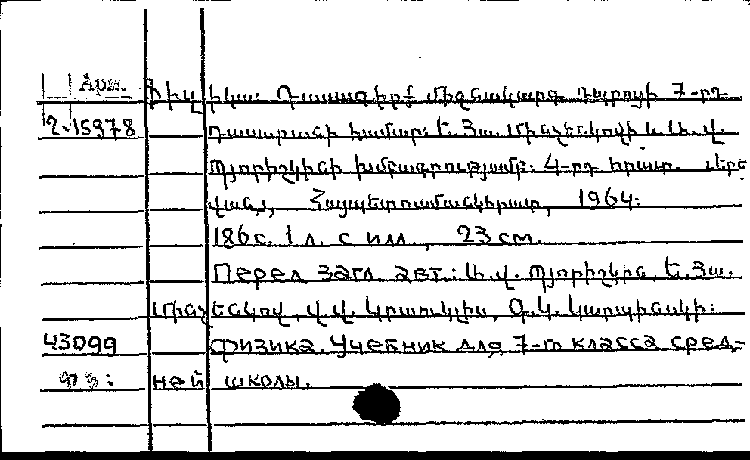 Арм. Ֆիզիկա: Դասագիրք միջնակարգ դպրոցի 7-րդ
2-15978 դասարանի համար: Ե. Յա. Մինչենկովի և Ա. Վ.
Պյորիշկինի խմբագրությամբ: 4-րդ հրատ. Երե
վան, Հայպետուսմանկհրատ, 1964:
186 с. 1 л. с илл., 23 см.
Перед загл. авт.: Ա. Վ. Պյորիշկին, Ե. Յա.
Մինչենկով, Վ. Վ. Կրաուկլիս, Գ. Կ. Կարպինսկի:
43099 Физика. Учебник для 7-го класса сред-
ней школы.